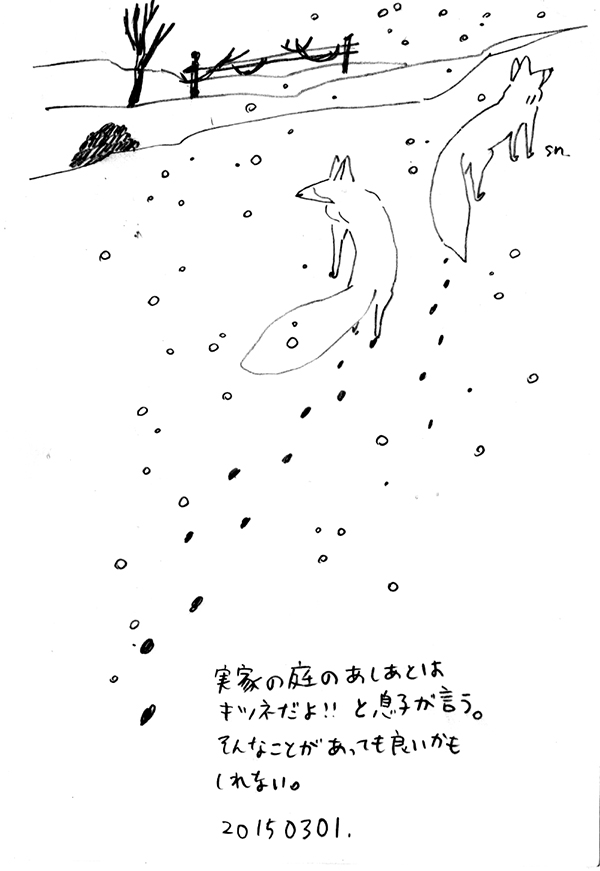 sn.
実家の庭のあしあとは
キツネだよ!! と息子が言う。
そんなことがあっても良いかも
しれない。
20150301.